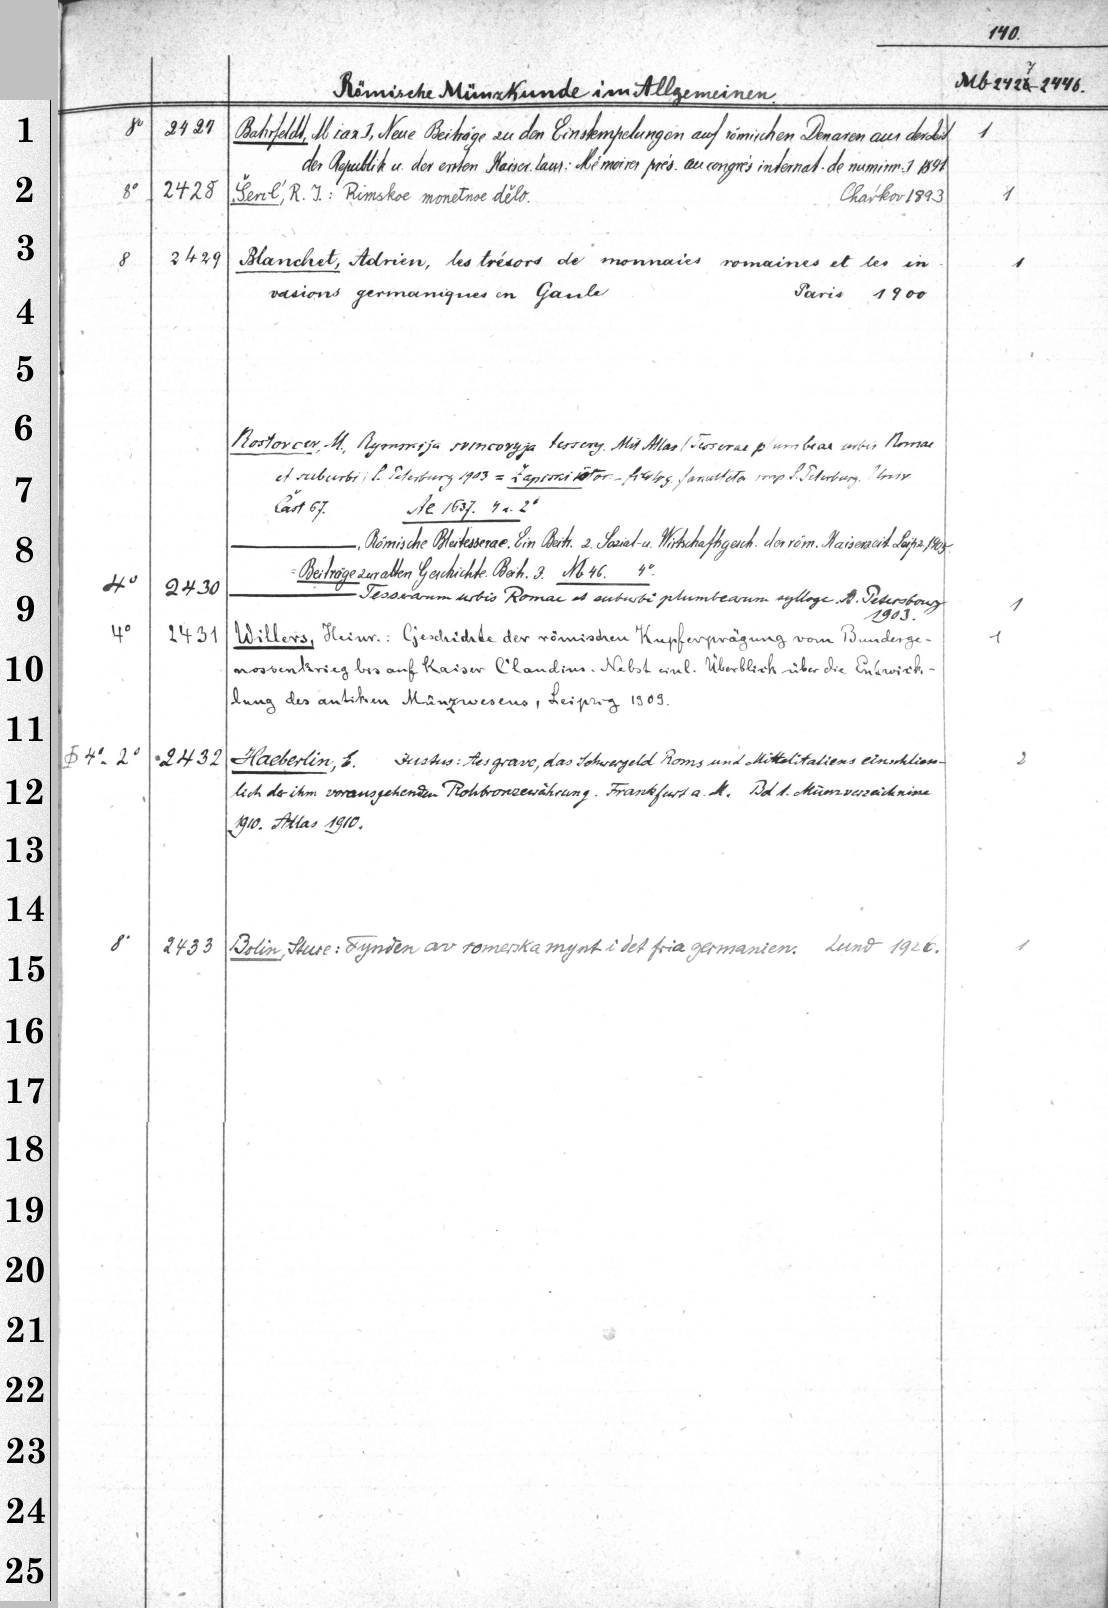 140.
Römische Münzkunde im Allgemeinen.
Mb 2427-2446.
1
8° 2427 Bahrfeldt, M[ax], Neue Beiträge zu den Einstempelungen auf römischen Denaren aus der Zeit 1
der Republik u. der ersten Kaiser. aus: Mémoires prés. au congrès internat. de numism. 1891
2
8° 2428 Šercl', R. I.: Rimskoe monetnoe dělo. Char'kov 1893 1
3
8 2429 Blanchet, Adrien, les trésors de monnaies romaines et les in- 1
vasions germaniques en Gaule Paris 1900
4
5
6
Rostovcev, M., Rymskija svincovyja tessery. Mit Atlas (Tesserae plumbeae urbis Romae
et suburbi) S. Peterburg 1903 = Zapiski istor.- fakulteta imp. S. Peterburg. Univ.
7
Čast 67. Ae 1637. 4 u. 2°
8
, Römische Bleitesserae. Ein Beitr. z. Sozial- u. Wirtschaftsgesch. der röm. Kaiserzeit. Leipz. 1905
= Beiträge zur alten Geschichte. Beih. 3. Mb 46. 4°.
4° 2430 Tesserarum urbis Romae et suburbi plumbearum sylloge. St. Petersbourg 1
1903.
9
4° 2431 Willers, Heinr.: Geschichte der römischen Kupferprägung vom Bundesge- 1
10
nossenkrieg bis auf Kaiser Claudius. Nebst einl. Überblick über die Entwick-
lung des antiken Münzwesens, Leipzig 1909.
11
4°- 2° 2432 Haeberlin, E. Justus: Aes grave, das Schwergeld Roms und Mittelitaliens einschliess- 2
12
lich der ihm vorausgehenden Rohbronzewährung. Frankfurt a. M. Bd 1. Münzverzeichnisse
1910. Atlas 1910.
13
14
8° 2433 Bolin, Sture: Fynden av romerska mynt i det fria germanien. Lund 1926. 1
15
16
17
18
19
20
21
22
23
24
25